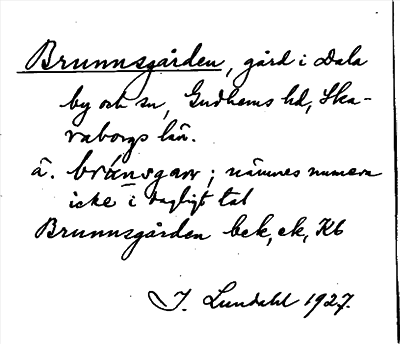 Brunnsgården, gård i Dala
by och sn, Gudhems hd, Ska-
raborgs län.
ä. brúnsgaɷr; nämnes numera
icke i dagligt tal
Brunnsgården bek, ek, Kb
I. Lundahl 1927.